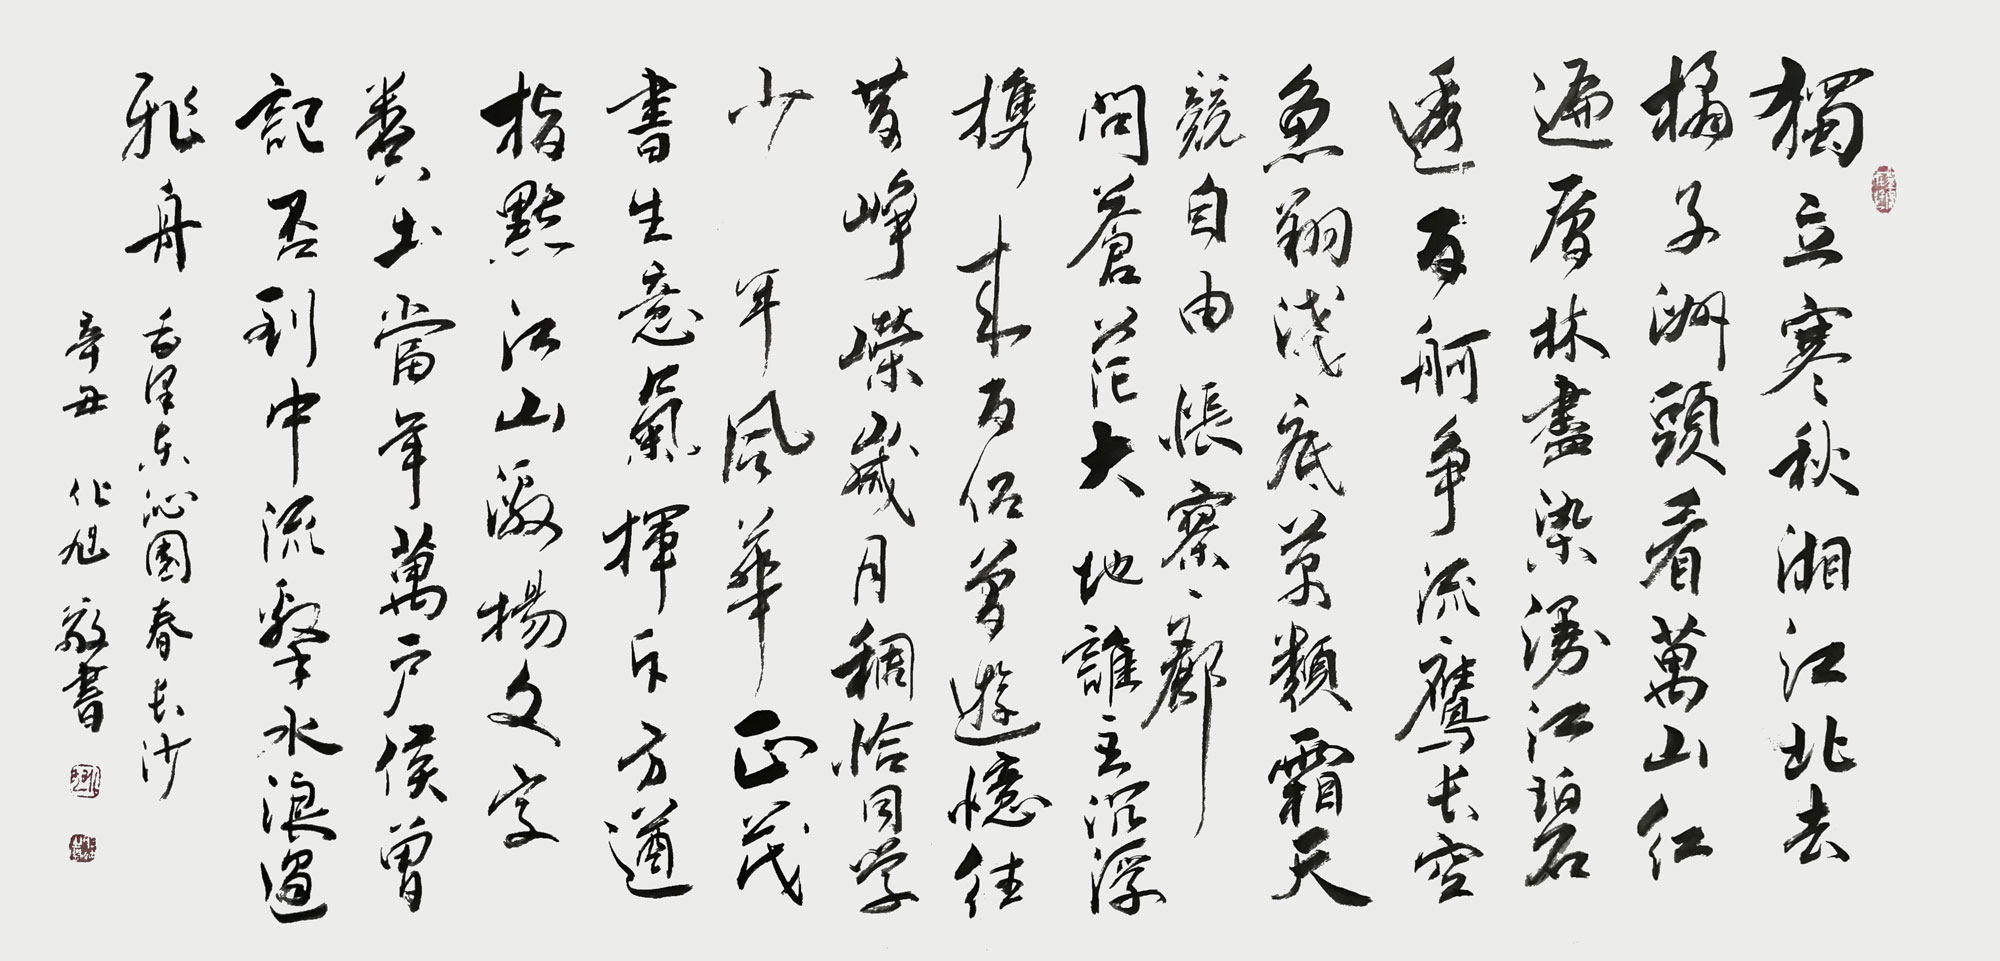 獨立寒秋湘江北去
橘子洲頭看萬山红
遍層林盡染漫江碧
透百舸争流鷹长空
魚翔淺底萬類霜天
競自由悵寥廓
問蒼茫大地誰主沉浮
携來百侣曾遊憶往
昔崢嶸歲月稠恰同学
少年風華正茂
書生意氣揮斥方遒
指點江山激揚文字
糞土當年萬户侯曾
記否到中流擊水浪遏
飛舟
毛泽东沁園春长沙
辛丑 敬書